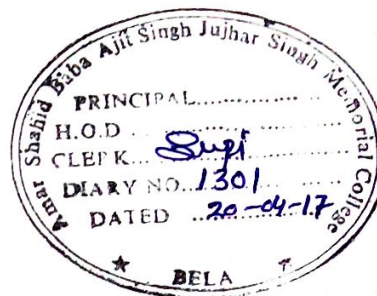 Amar Shahid Baba Ajit Singh Jujhar Singh Memorial College
PRINCIPAL....................
H.O.D ....................
CLERK...
DIARY NO. 1301
DATED ...20-04-17
★ BELA ★